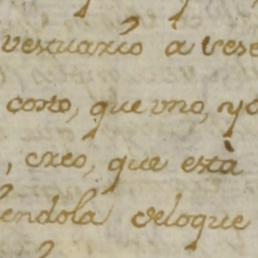 vestuario à vese
corto, que uno, yo
, creo, que està
endola deloque